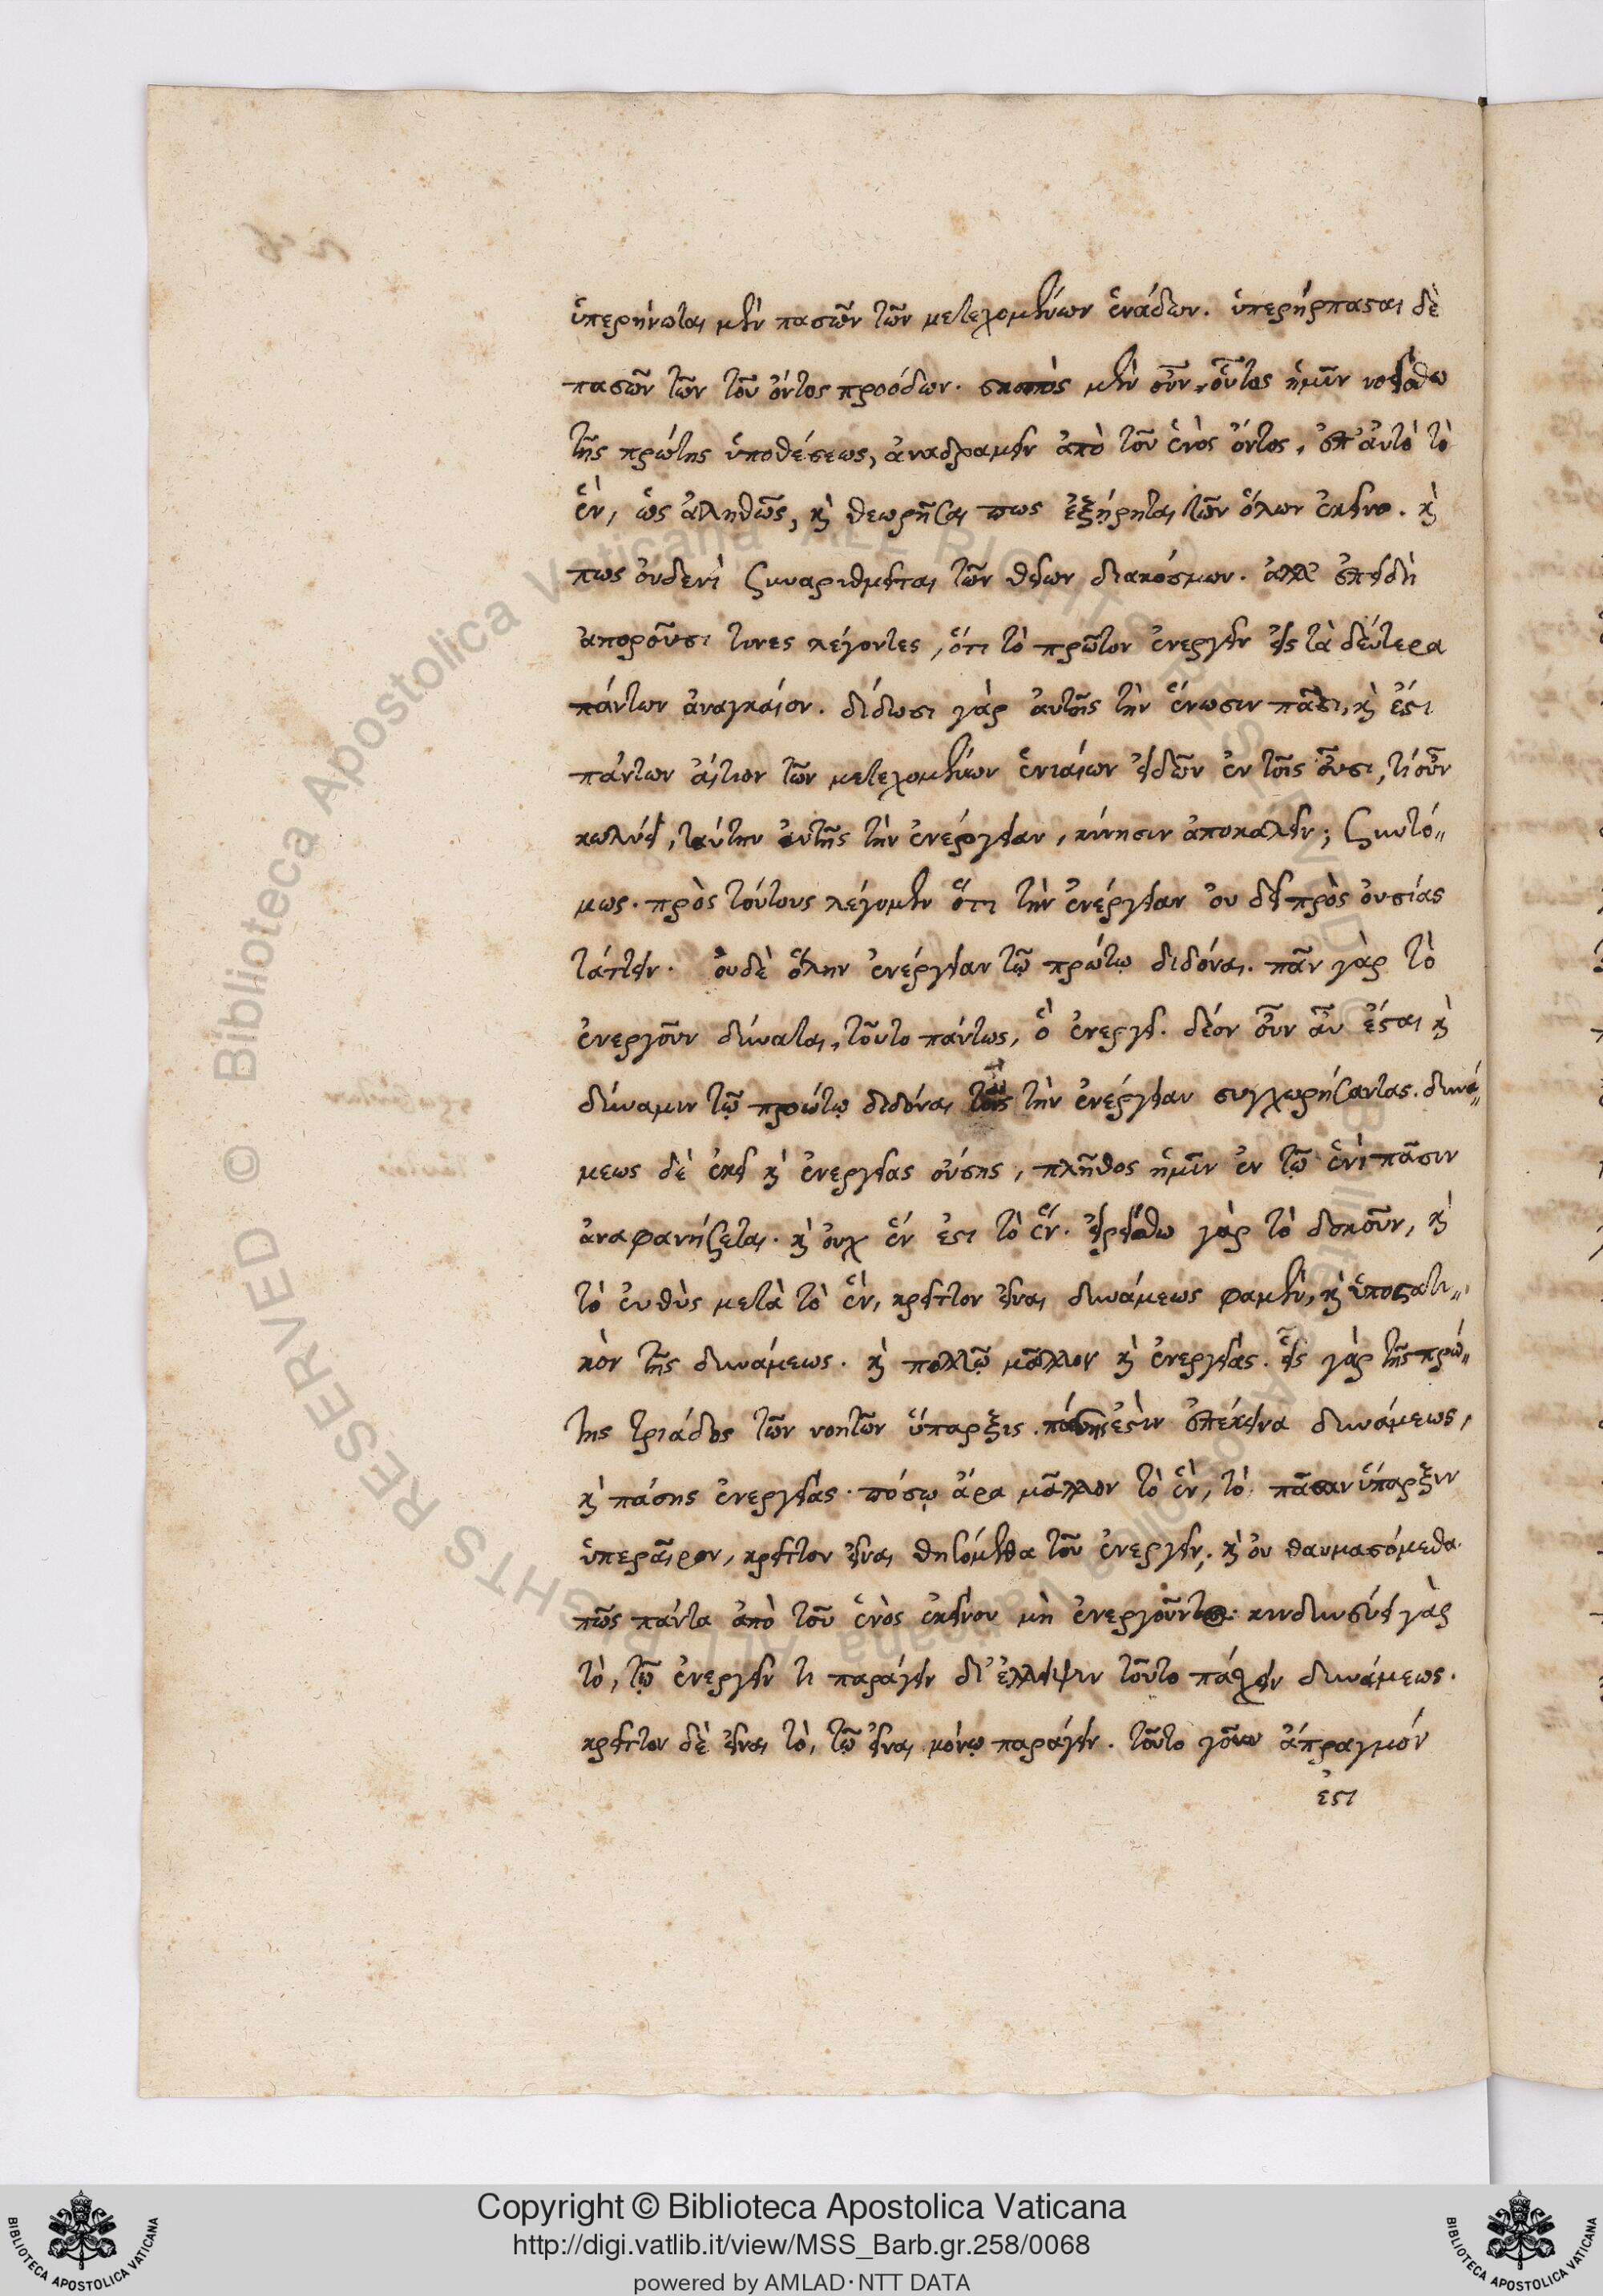 ὑπερήνωται μὲν πασῶν τῶν μετεχομένων ἑνάδων. ὑπερήρπασται δὲ
πασῶν τῶν τοῦ ὄντος προόδων. σκοπὸς μὲν οὖν οὗτος ἡμῖν νοείσθω
τῆς πρώτης ὑποθέσεως, ἀναδραμεῖν ἀπὸ τοῦ ἑνὸς ὄντος, ἐπ' αὐτὸ τὸ
ἓν, ὡς ἀληθῶς, καὶ θεωρῆσαι πως ἐξῄρηται τῶν ὅλων ἐκεῖνο. καὶ
πως οὐδενὶ συναριθμεῖται τῶν θείων διακόσμων. ἀλλ' ἐπειδὴ
ἀποροῦσι τινες λέγοντες, ὅτι τὸ πρῶτον ἐνεργεῖν εἰς τὰ δεύτερα
πάντων ἀναγκαίον. δίδωσι γὰρ αὐτοῖς τὴν ἕνωσιν πᾶσι, καὶ ἔστι
πάντων αἴτιον τῶν μετεχομένων ἑνιαίων εἰδῶν ἐν τοῖς οὖσι, τί οὖν
κωλύει, ταύτην αὐτῆς τὴν ἐνέργειαν, κίνησιν ἀποκαλεῖν; συντό〃
μως. πρὸς τούτους λέγομεν ὅτι τὴν ἐνέργειαν οὐ δεῖ πρὸς οὐσίας
τάττειν. οὐδὲ ὅλην ἐνέργειαν τῷ πρώτῳ διδόναι. πᾶν γὰρ τὸ
ἐνεργοῦν δύναται, τοῦτο πάντως, ὃ ἐνεργεῖ. δέον οὖν ἂν ἔσται καὶ
δύναμιν τῷ πρώτῳ διδόναι τοῖς τὴν ἐνέργειαν συγχωρήσαντας. δυνά〃
μεως δὲ ἐκεῖ καὶ ἐνεργείας οὔσης, πλῆθος ἡμῖν ἐν τῷ ἑνὶ πᾶσιν
ἀναφανήσεται. καὶ οὐχ ἕν ἐστι τὸ ἕν. εἰρείσθω γὰρ τὸ δοκοῦν, καὶ
τὸ εὐθὺς μετὰ τὸ ἓν, κρεῖττον εἶναι δυνάμεως φαμὲν, καὶ ὑποστατι〃
κὸν τῆς δυνάμεως. καὶ πολλῷ μᾶλλον καὶ ἐνεργείας. εἷς γὰρ τῆς πρώ〃
της τριάδος τῶν νοητῶν ὕπαρξις. πάσης ἐστὶν ἐπέκεινα δυνάμεως,
καὶ πάσης ἐνεργείας. πόσῳ ἄρα μᾶλλον τὸ ἓν, τὸ πᾶσαν ὕπαρξιν
ὑπεραῖρον, κρεῖττον εἶναι θησόμεθα τοῦ ἐνεργεῖν, καὶ οὐ θαυμασόμεθα.
πῶς πάντα ἀπὸ τοῦ ἑνὸς ἐκείνου μὴ ἐνεργοῦντος. κινδυνεύει γὰρ
τὸ, τῷ ἐνεργεῖν τι παράγειν δι' ἔλλειψιν τοῦτο πάσχειν δυνάμεως.
κρεῖττον δὲ εἶναι τὸ, τῷ εἶναι μόνῳ παράγειν. τοῦτο γοῦν ἄπραγμόν
ἐστι
Copyright © Biblioteca Apostolica Vaticana
http://digi.vatlib.it/view/MSS_Barb.gr.258/0068
powered by AMLAD·NTT DATA